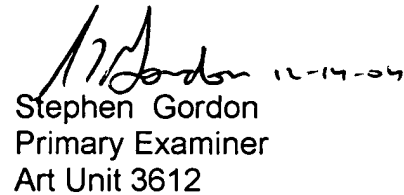 S Gordon 12-14-04
Stephen Gordon
Primary Examiner
Art Unit 3612